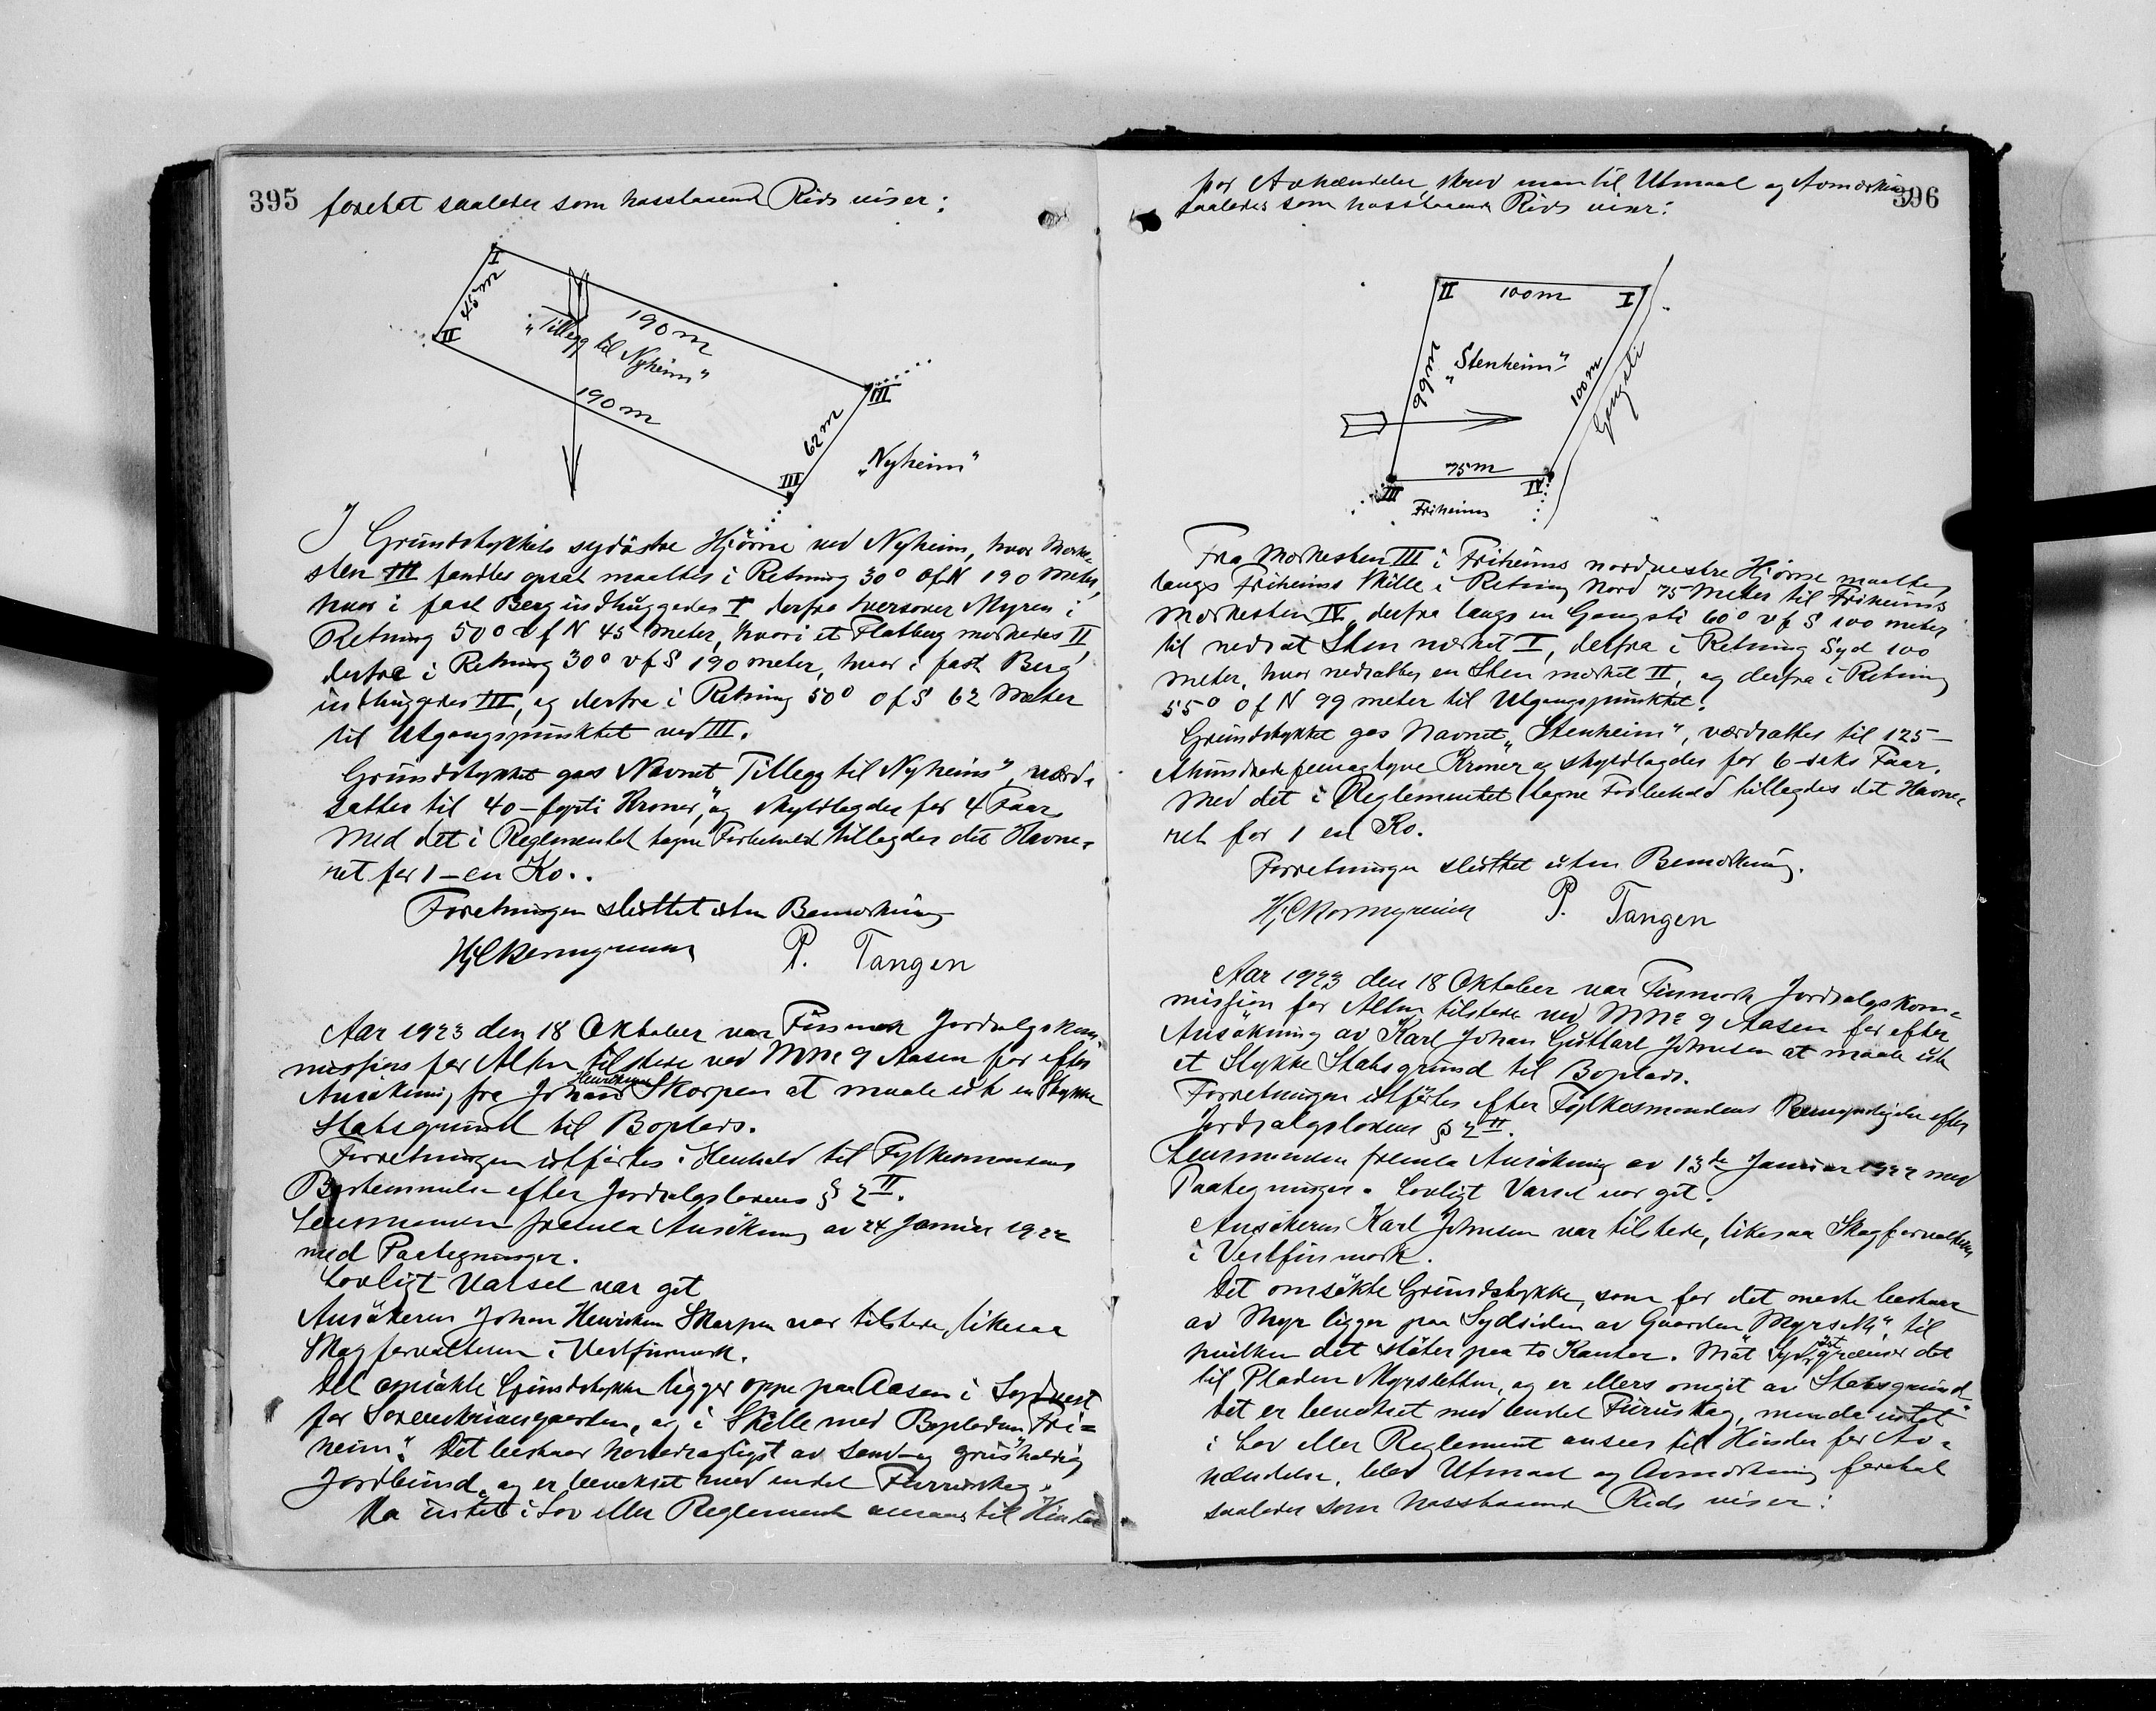 395
foretat saaledes som hosstaaende Rids viser:
I
45 m
II
190 m
"Tillegg til Nyheim"
190 m
III
62 m
III
"Nyheim"
I Grundstykkets sydöstre Hjörne ved Nyheim, hvor Merke-
sten III fandtes opsat maaltes i Retning 30° ØfN 190 Meter,
hvor i fast Berg indhuggedes I derfra tversover Myren i
Retning 50° VfN 45 Meter, hvor i et Flatberg merkedes II,
derfra i Retning 30° vfS 190 meter, hvor i fast Berg
indhuggedes III, og derfra i Retning 50° ØfS 62 Meter
til Utgangspunktet ved III.
Grundstykket gaes Navnet "Tillegg til Nyheim", værd-
sattes til 40 - forti Kroner, og skyldlagdes for 4 Faar
Med det i Reglementet tagne Forbehold tillegdes det Havne-
ret for 1 - en Ko..
Forretningen sluttet uten Bemerkning
P. Tangen
Aar 1923 den 18 Oktober var Finmark Jordsalgskom-
mission for Alten tilstede ved MNr 9 Aasen for efter
Ansökning fra Johan Henriksen Skorpen at maale ut en Stykke
Statsgrund til Boplads.
Forretningen utförtes i Henhold til Fylkesmandens
Bestemmelse efter Jordsalgslovens § 2 II.
Lensmanden fremla Ansökning av 24 Januar 1922
med Paategninger.
Lovligt Varsel var git
Ansökeren Johan Henriksen Skorpen var tilstede, likesaa
Skogforvalteren i Vestfinmark.
Det omsökte Grundstykke ligger oppe paa Aasen i Sydvest
for Gaarden, og i Skille med Bopladsen "Fri-
heim". Det bestaar hovedsagligst av Sand og grusholdig
Jordbund, og er bevokset med endel Furuskog.
Da intet i Lov eller Reglement ansaaes til Hinder
396
for Avhændelse, skred man til Utmaal og Avmerkning
saaledes som hosstaaende Rids viser:
II
100 m
I
99 m
"Stenheim"
100 m
Gangsti
75 m
III
IV
Friheim
Fra Merkesten III i Friheims nordvestre Hjörne maaltes
langs Friheims Skille i Retning Nord 75 Meter til Friheims
Merkesten IV, derfra langs en Gangsti 60° vfS 100 meter
til nedsat Sten merket I, derfra i Retning Syd 100
meter, hvor nedsattes en Sten merket II, og derfra i Retning
55° ØfN 99 meter til Utgangspunktet.
Grundstykket gas Navnet "Stenheim", værdsattes til 125 -
Ethundrede femogtyve Kroner og skyldlagdes for 6 - seks Faar.
Med det i Reglementet tagne Forbehold tillegdes det Havne-
ret for 1 en Ko.
Forretningen sluttet uten Bemerkning.
P. Tangen
Aar 1923 den 18 Oktober var Finmark Jordsalgskom-
mission for Alten tilstede ved MNr 9 Aasen for efter
Ansökning av Karl Johan Johnsen at maale ut
et Stykke Statsgrund til Boplads.
Forretningen utförtes efter Fylkesmandens efter
Jordsalgslovens § 2 II.
Lensmanden fremla Ansökning av 13de Januar 1922 med
Paategninger. Lovligt Varsel var git.
Ansökeren Karl Johnsen var tilstede, likesaa Skogforvalteren
i Vestfinmark.
Det omsökte Grundstykke, som for det meste bestaar
av Myr ligger paa Sydsiden av Gaarden til
hvilken det stöter paa to Kanter. Mot Sydöst grænser det
til Pladsen Myrsletten, og er ellers omgit av Statsgrund.
Det er bevokset med endel Furuskog, men da intet
i Lov eller Reglement ansees til Hinder for Av-
hændelse, blev Utmaal og Avmerkning foretat
saaledes som hosstaaende Rids viser: